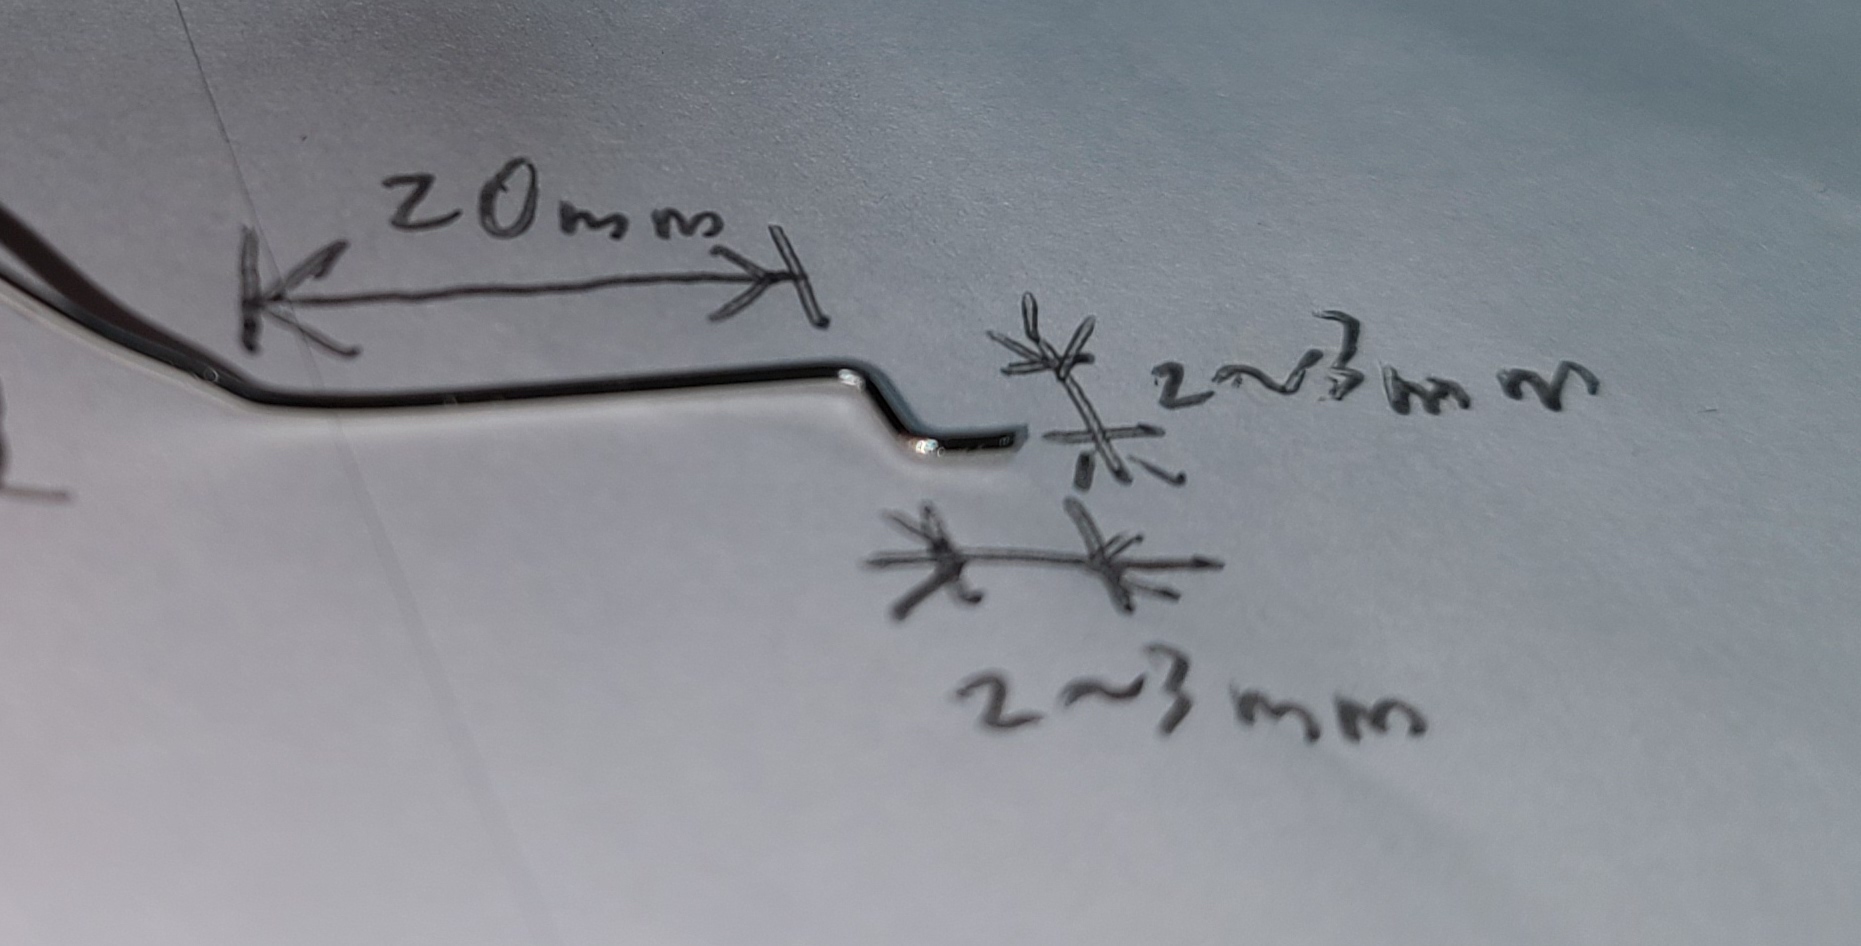 20mm
2~3mm
2~3mm